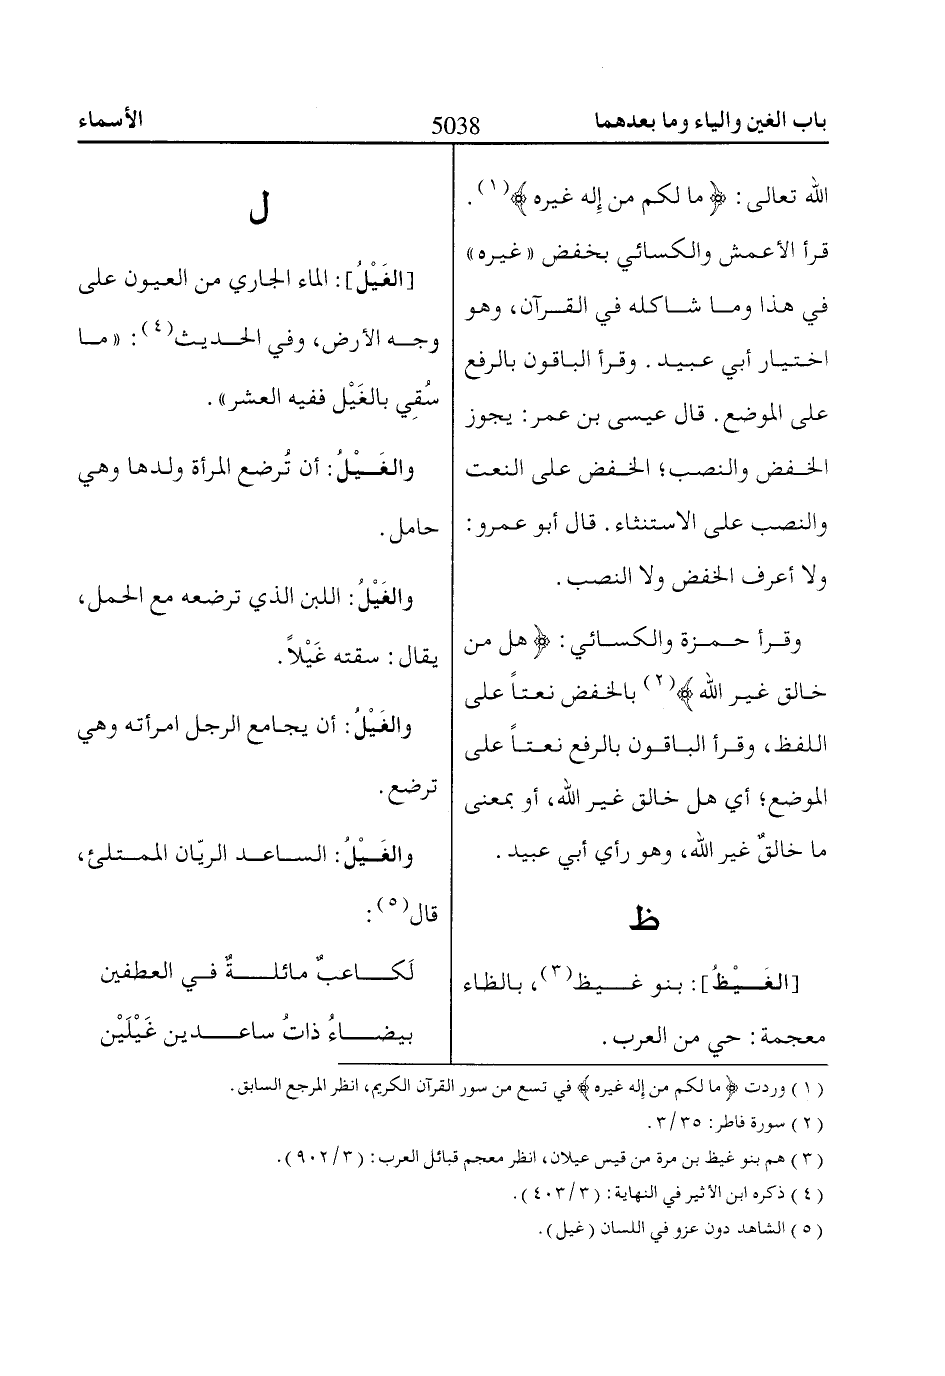 باب الغين والياء وما بعدهما 5038 الأسماء
الله تعالى: ﴿ ما لكم من إله غيره ﴾(١).
قرأ الأعمش والكسائي بخفض «غيره»
في هذا وما شاكله في القرآن، وهو
اختيار أبي عبيد. وقرأ الباقون بالرفع
على الموضع. قال عيسى بن عمر: يجوز
الخفض والنصب؛ الخفض على النعت
والنصب على الاستثناء. قال أبو عمرو:
ولا أعرف الخفض ولا النصب.
وقرأ حمزة والكسائي: ﴿ هل من
خالق غير الله ﴾(٢) بالخفض نعتاً على
اللفظ، وقرأ الباقون بالرفع نعتاً على
الموضع؛ أي هل خالق غير الله، أو بمعنى
ما خالقٌ غير الله، وهو رأي أبي عبيد.
ظ
[الغَيْظُ]: بنو غيظ(٣)، بالظاء
معجمة: حي من العرب.
ل
[الغَيْلُ]: الماء الجاري من العيون على
وجه الأرض، وفي الحديث(٤): «ما
سُقِي بالغَيْل ففيه العشر».
والغَيْلُ: أن تُرضع المرأة ولدها وهي
حامل.
والغَيْلُ: اللبن الذي ترضعه مع الحمل،
يقال: سقته غَيْلاً.
والغَيْلُ: أن يجامع الرجل امرأته وهي
ترضع.
والغَيْلُ: الساعد الريّان الممتلئ،
قال(٥):
لَكاعبٌ مائلةٌ في العطفين
بيضاءُ ذاتُ ساعدين غَيْلَيْن
(١) وردت ﴿ ما لكم من إله غيره ﴾ في تسع من سور القرآن الكريم، انظر المرجع السابق.
(٢) سورة فاطر: ٣/٣٥.
(٣) هم بنو غيظ بن مرة من قيس عيلان، انظر معجم قبائل العرب: (٩٠٢/٣).
(٤) ذكره ابن الأثير في النهاية: (٤٠٣/٣).
(٥) الشاهد دون عزو في اللسان (غيل).